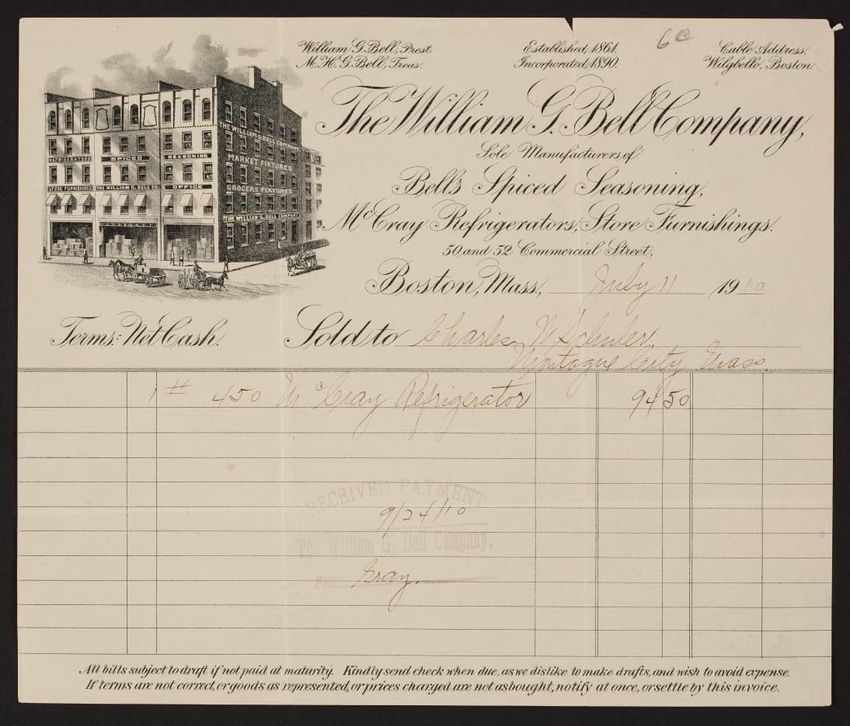 William G. Bell, Prest.
M. H. G. Bell, Treas.
Established, 1861.
Incorporated, 1890.
6c
Cable Address.
Wilgbello, Boston.
The William G. Bell Company,
Sole Manufacturers of
Bell's Spiced Seasoning,
McCray Refrigerators, Store Furnishings.
50 and 52 Commercial Street,
Boston, Mass, July 11 1910
REFRIGERATORS SPICED SEASONING
STORE FURNISHINGS THE WILLIAM G. BELL CO. OFFICE
THE WILLIAM G. BELL COMPANY
MARKET FIXTURES
GROCERS FIXTURES
THE WILLIAM G. BELL COMPANY
Terms: Net Cash. Sold to Charles W.
Montague City Mass.
1 # 450 McCray Refrigerator 94 50
RECEIVED PAYMENT
9/24/10
The William G. Bell Company.
Gray.
All bills subject to draft if not paid at maturity. Kindly send check when due, as we dislike to make drafts, and wish to avoid expense.
If terms are not correct, or goods as represented, or prices charged are not as bought, notify at once, or settle by this invoice.